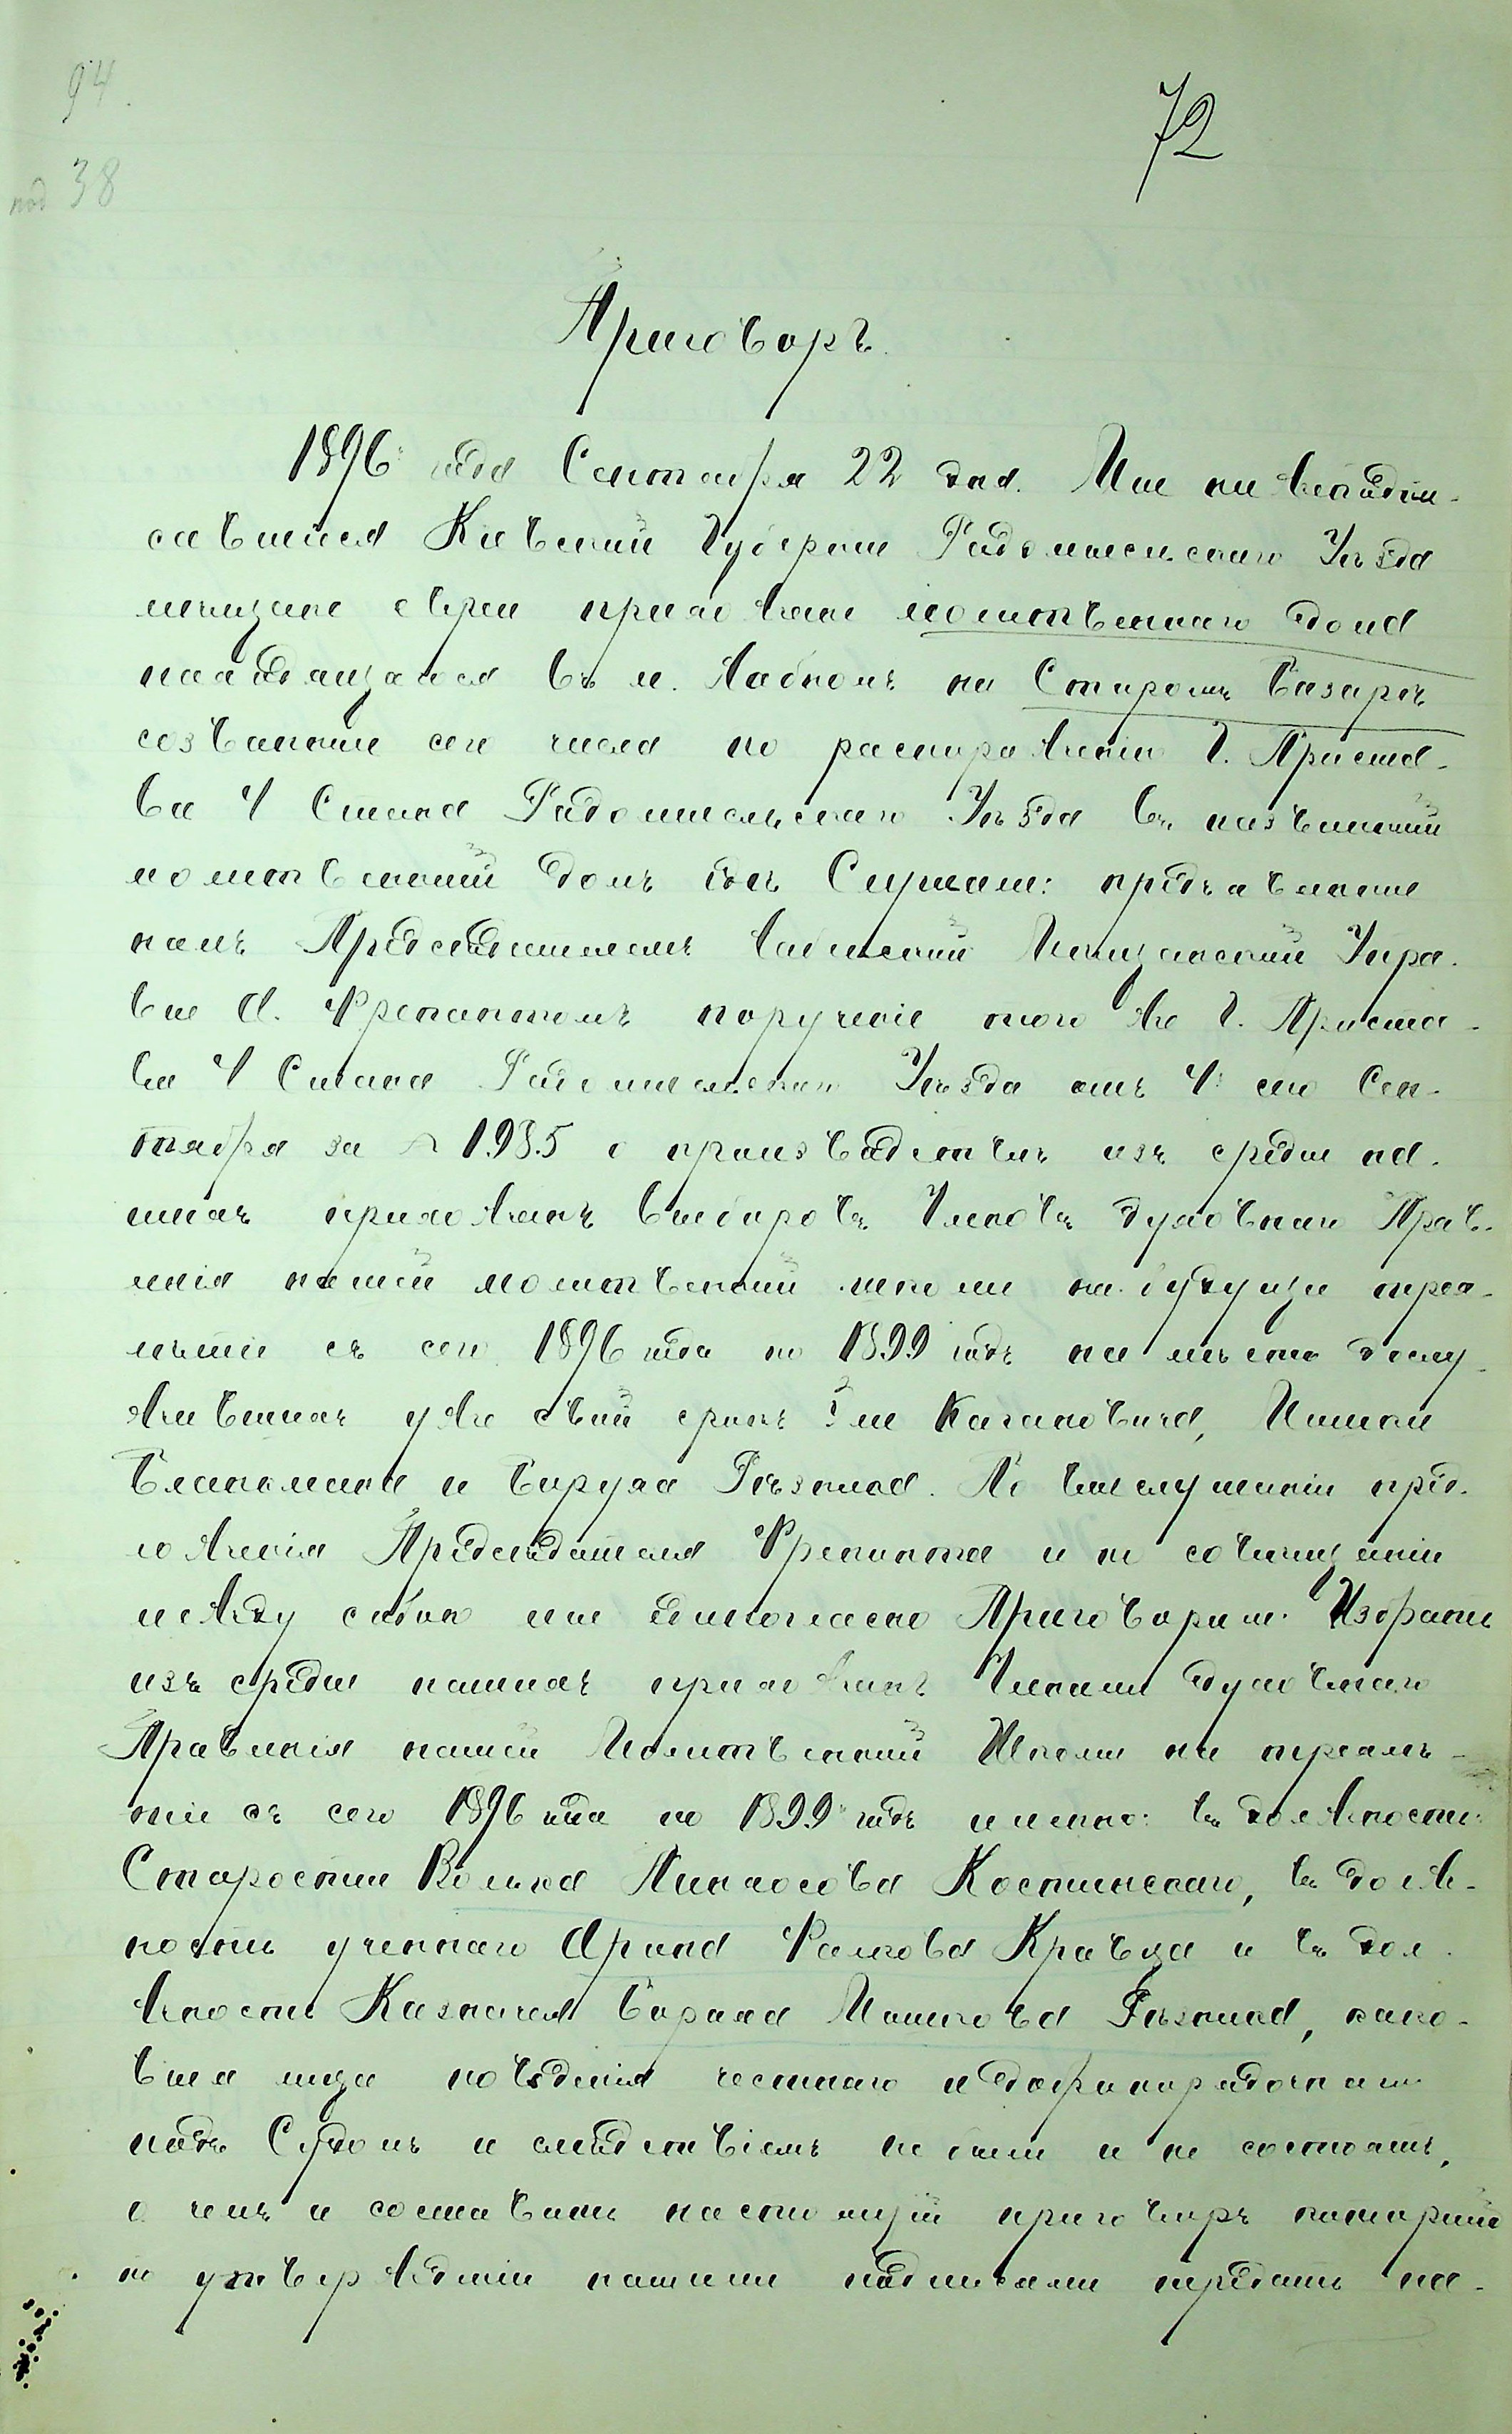 94.
72
под 38
Приговоръ.
1896 года Сентября 22 дня. Мы ниже подпи-
савшiеся Кiевской Губернiи Радомысльскаго Уѣзда
мещане евреи прихожане молитвеннаго дома
находящагося въ м. на Старомъ Базарѣ
созванные сего числа по распоряженiю Г. Приста-
ва 4 Стана Радомысльскаго Уѣзда въ названный
молитвенный домъ гдѣ Слушали: предъявленное
намъ Председателемъ Мещанской Упра-
вы А. поручение того же Г. Приста-
ва 4 Стана Радомысльскаго Уѣзда отъ 4 сего Сен-
тября за № 1935 о производствѣ изъ среды на-
шихъ прихожанъ выборовъ Членовъ духовнаго Прав-
ленiя нашей молитвенной школы на будущее трех-
лѣтiе съ сего 1896 года по 1899 годъ на мѣсто дослу-
жившихъ уже свой срокъ Кагановича,
и Боруха Рѣзника. По выслушанiи пред-
ложенiя Председателя и по совещанiи
между собою мы единогласно Приговорили: Избрать
изъ среды нашихъ прихожанъ Членами духовнаго
Правленiя нашей Молитвенной Школы на трехлѣ-
тiе съ сего 1896 года по 1899 годъ именно: въ должность
Старосты Волька Костинскаго, въ долж-
ность ученнаго Арина Кравца и въ дол-
жность Казначея Боруха Мошкова Рѣзника, како-
выя лица поведенiя честнаго и добропорядочнаго
подъ Судомъ и следствiемъ не были и не состоятъ,
о чемъ и составили настоящiй приговоръ который
по утвержденiи нашими подписями передать на-